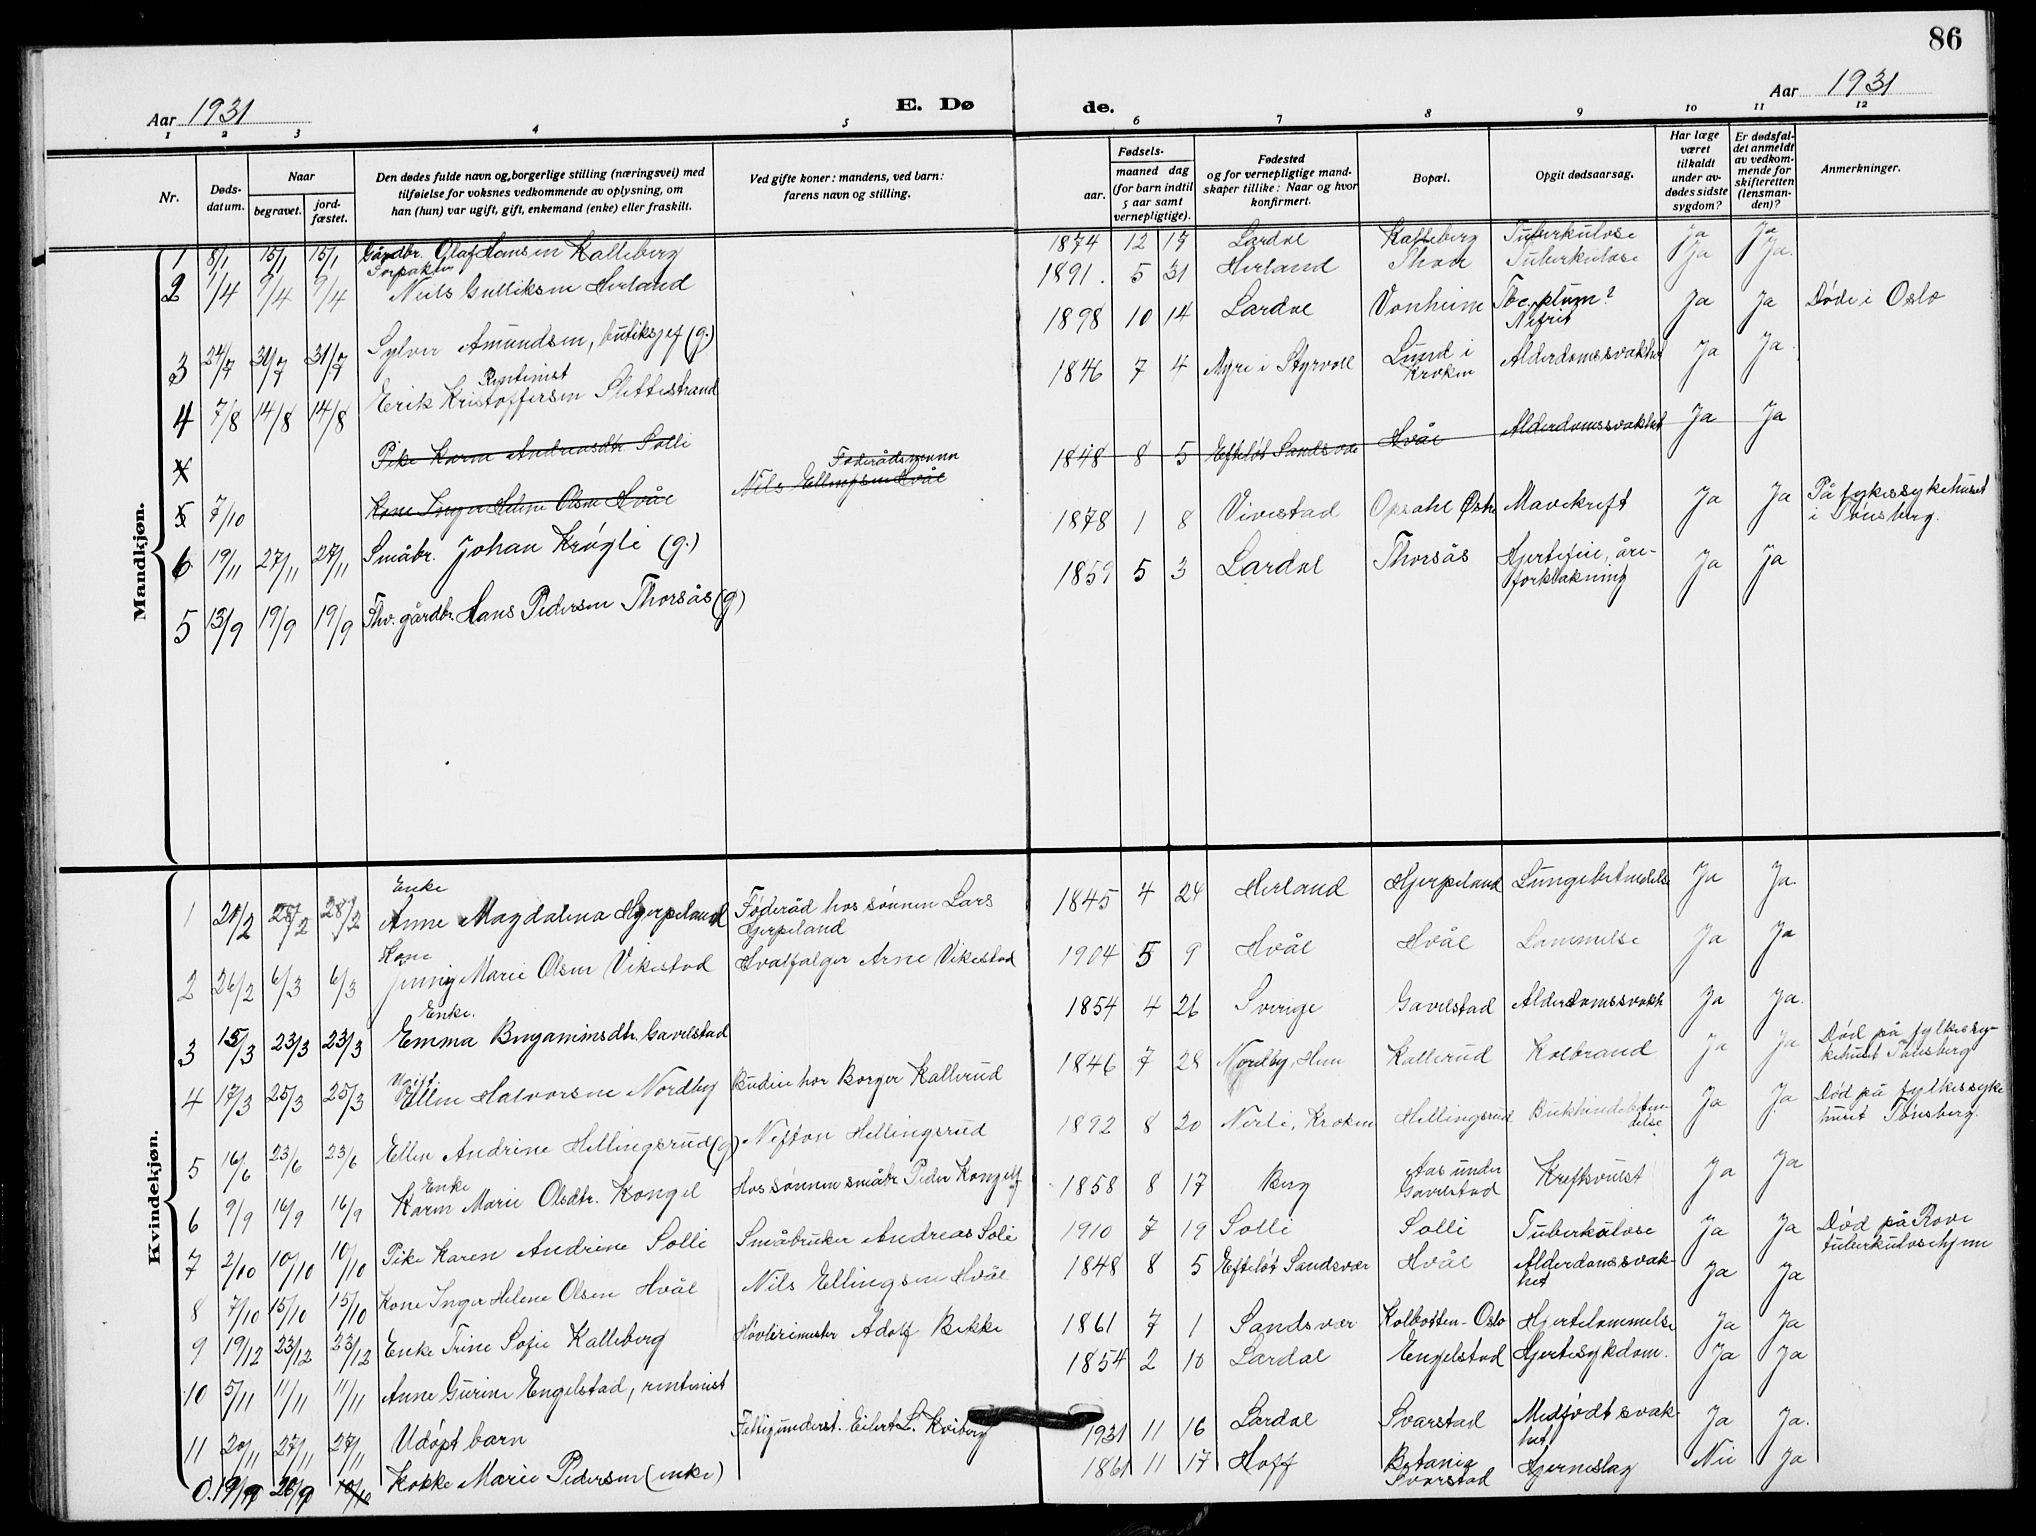 86
Aar 1931 E. Dø de. Aar 1931
1 2 3 4 5 6 7 8 9 10 11 12
Nr. Døds-datum. Naar begravet. jord-fæstet. Den dødes fulde navn og borgerlige stilling (næringsvei) med tilføielse for voksnes vedkommende av oplysning, om han (hun) var ugift, gift, enkemand (enke) eller fraskilt. Ved gifte koner: mandens, ved barn: farens navn og stilling. Fødsels- aar. maaned dag (for barn indtil 5 aar samt vernepligtige). Fødested og for vernepligtige mand-skaper tillike: Naar og hvor konfirmert. Bopæl. Opgit dødsaarsag. Har læge været tilkaldt under av-dødes sidste sygdom? Er dødsfal-det anmeldt av vedkom-mende for skifteretten (lensman-den)? Anmerkninger.
Mandkjøn.
1 8/1 15/1 15/1 Gårdbr. Olaf Hansen Kalleberg 1874 12 17 Lardal Kalleberg Tuberkulose Ja Ja
2 1/4 9/4 9/4 Forpakter Neils Gulliksen Herland 1891. 5 31 Herland Thor Tuberkulose Ja Ja.
3 24/7 31/7 31/7 Sylver Amundsen, butiksjef (g.) 1898 10 14 Lardal Vonheim Tbc. plum? Nefrit Ja Ja Døde i Oslo
4 7/8 14/8 14/8 Rentenist Erik Kristoffersen Slettestrand 1846 7 4 Myre i Styrvoll Lund i Kroken Alderdomssvakhet Ja Ja.
x Pike Karen Andreasdtr Solli
5 7/10 Kone Inger Helene Olsen Hvål Føderådsmann Nils Ellingsen Hvål 1848 8 5 Efteløt Sandsvær Hvål Alderdomssvakhet Ja Ja
6 19/11 27/11 27/11 Småbr. Johan Krøgli (g.) 1878 1 8 Vivestad Opsahl Østre Mavekreft Ja Ja På fylkessykehuset i Tønsberg.
5 13/9 19/9 19/9 Fhv. gårdbr. Hans Pedersen Thorsås (g) 1859 5 3 Lardal Thorsås Hjertefeil, åre-forkalkning Ja Ja
Kvindekjøn.
1 21/2 28/2 28/2 Enke Anne Magdalena Hjerpeland Føderåd hos sønnen Lars Hjerpeland 1845 4 24 Herland Hjerpeland Lungebetendelse Ja Ja.
2 26/2 6/3 6/3 Kone Jenny Marie Olsen Vikestad Hvalfanger Arne Vikestad 1904 5 9 Hvål Hvål Lammelse Ja Ja
3 15/3 23/3 23/3 Enke. Emma Bengaminsdtr. Gavelstad 1854 4 26 Sverige Gavelstad Alderdomssvakh Ja Ja.
4 17/3 25/3 25/3 Ugift Ellen Halvorsen Nordby Budeie hos Borger Kallerud 1846 7 28 Nordby, Hem Kallerud Kolbrand Ja Ja Død på fylkessy-kehuset Tønsberg
5 16/6 23/6 23/6 Ellen Andrine Hellingsrud (g) Nefton Hellingsrud 1892 8 20 Nerli, Kroken Hellingsrud Bukhindebeten-delse. Ja Ja Død på fylkessyke huset Tønsberg.
6 9/9 16/9 16/9 Enke Karen Marie Olsdtr. Kongel Hos sønnen småbr. Peder Kongelf 1858 8 17 Berg Aas under Gavelstad Kreftsvulst Ja Ja
7 2/10 10/10 10/10 Pike Karen Andrine Solli Småbruker Andreas Soli 1910 7 19 Solli Solli Tuberkulose Ja Ja Død på Rove tuberkulosehjem
8 7/10 15/10 15/10 Kone Inger Helene Olsen Hvål Nils Ellingsen Hvål 1848 8 5 Efteløt Sandsvær Hvål Alderdomssvak-het Ja Ja
9 19/12 23/12 23/12 Enke Trine Sofie Kalleberg Høvlerimester Adolf Bekke 1861 7 1 Sandsvær Kolbotten-Oslo Hjertelammelse Ja Ja
10 5/11 11/11 11/11 Anne Gurine Engelstad, rentenist 1854 2 10 Lardal Engelstad Hjertesykdom. Ja Ja
11 20/11 27/11 27/11 Udøpt barn Eilert L. Kviberg 1931 11 16 Lardal Svarstad Medfødt svak-het Ja Ja.
0. 19/9 26/9 10/10 Kokke Marie Pedersen (enke) 1861 11 17 Hoff Betania Svarstad Hjerneslag Nei Ja